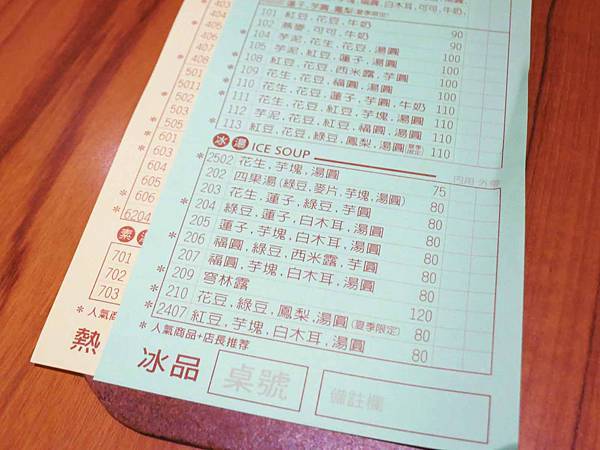 蓮子,芋圓,鳳梨(夏季限定)
101 紅豆,花豆,牛奶 90
102 燕麥,可可,牛奶 90
104 芋泥,花生,花豆,湯圓 100
*105 芋泥,紅豆,蓮子,湯圓 100
*108 紅豆,花豆,西米露,芋圓 100
109 花生,花豆,福圓,湯圓 100
*110 花生,花豆,蓮子,芋圓,牛奶 110
111 花生,花豆,紅豆,芋塊,湯圓 110
112 芋泥,花豆,紅豆,福圓,湯圓 110
*113 紅豆,花豆,綠豆,鳳梨,湯圓(夏季限定) 110
冰湯 ICE SOUP 內用 外帶
*2502 花生,芋塊,湯圓 75
202 四果湯(綠豆,麥片,芋塊,湯圓) 80
203 花生,蓮子,綠豆,芋圓 80
*204 綠豆,蓮子,白木耳,湯圓 80
205 蓮子,芋塊,白木耳,湯圓 80
*206 福圓,綠豆,西米露,芋圓 80
207 福圓,芋塊,白木耳,湯圓 80
209 穹林露 120
*210 花豆,綠豆,鳳梨,湯圓(夏季限定) 80
*2407 紅豆,芋塊,白木耳,湯圓 80
*人氣商品+店長推荐
冰品 桌號 備註欄
403
404
408
501
5011
502
503
505
601
604
605
606
*6204
素
701
702
703
*人氣商
熱